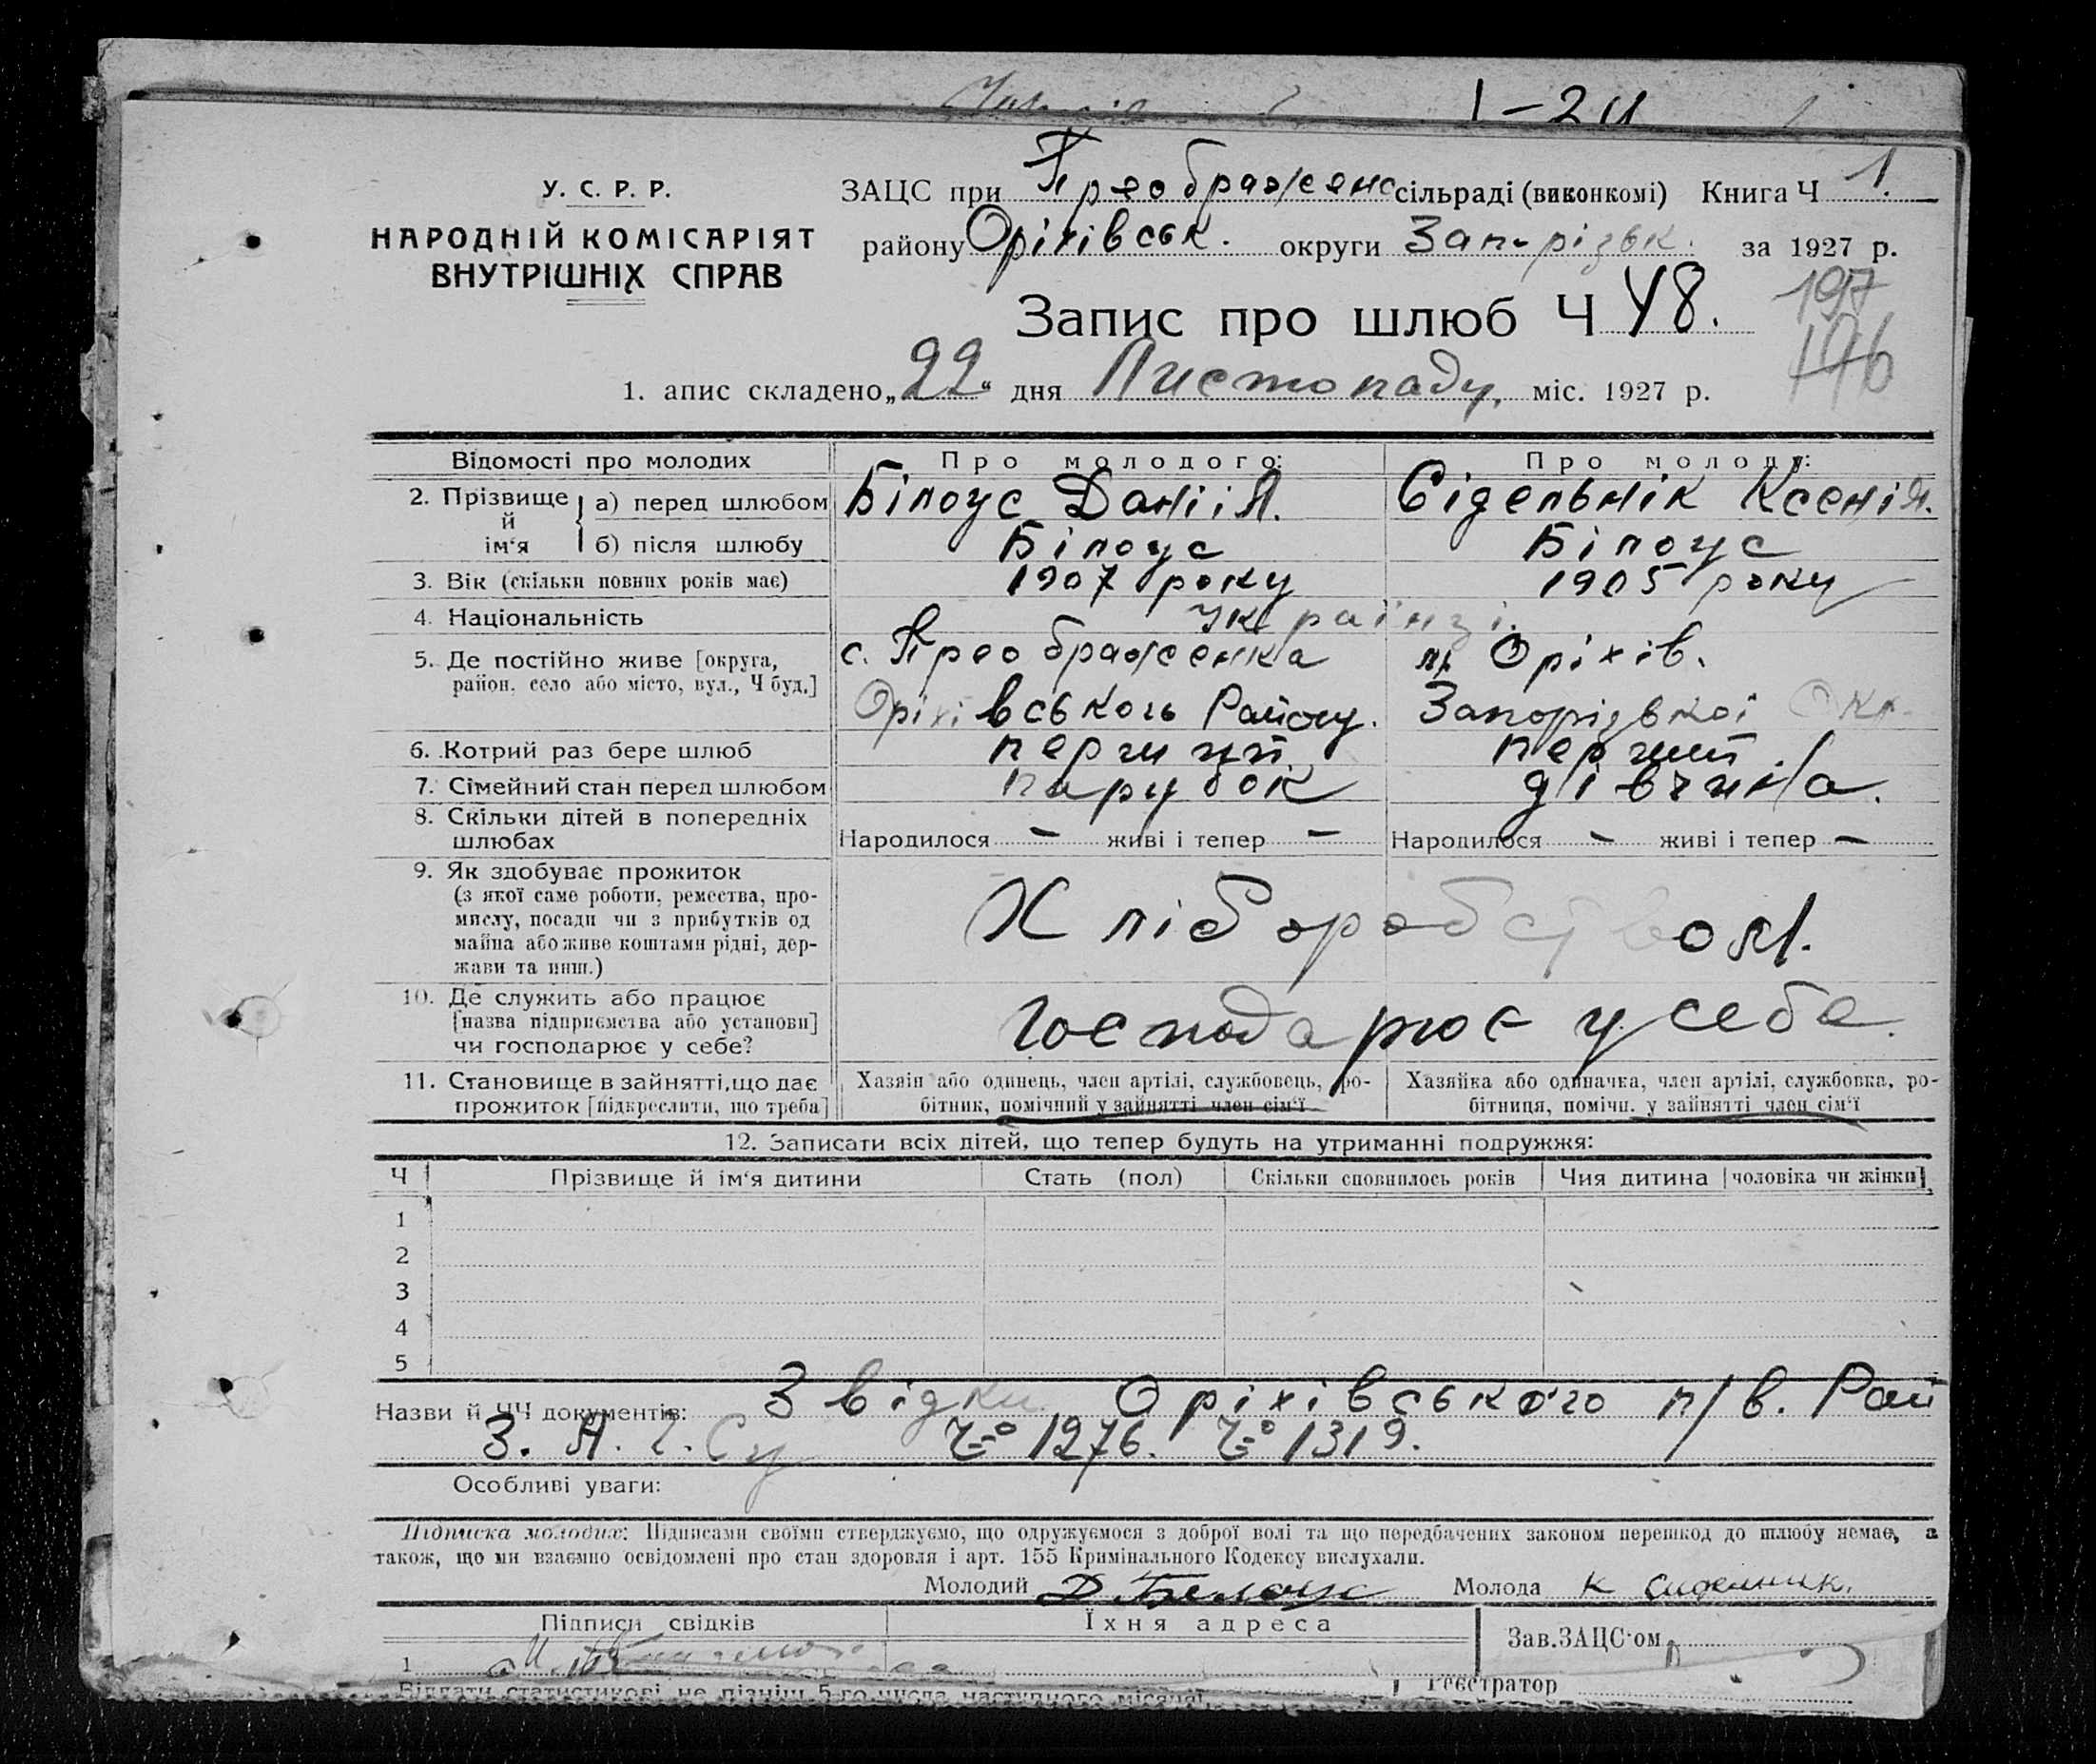 1-2
У. С. Р. Р.
НАРОДНІЙ КОМІСАРІЯТ
ВНУТРІШНІХ СПРАВ
ЗАЦС при Преображенс сільраді (виконкомі) Книга Ч 1.
району Оріхівськ. округи Запорізьк. за 1927 р.
Запис про шлюб Ч 48.
197
196
1. апис складено „22“ дня Листопаду, міс. 1927 р.
Відомості про молодих Про молодого: Про молоду:
2. Прізвище й ім‘я а) перед шлюбом Білоус Даніїл. Сідельнік Ксенія.
б) після шлюбу Білоус Білоус
3. Вік (скільки повних років має) 1907 року 1905 року
4. Національність Українці.
5. Де постійно живе [округа, с. Преображенка м. Оріхів.
район, село або місто, вул., Ч буд.] Оріхівського Району. Запорізької Окр.
6. Котрий раз бере шлюб перший перший.
7. Сімейний стан перед шлюбом парубок дівчина.
8. Скільки дітей в попередніх
шлюбах Народилося — живі і тепер — Народилося — живі і тепер —
9. Як здобуває прожиток
(з якої саме роботи, ремества, про-
мислу, посади чи з прибутків од Хліборобством.
майна або живе коштами рідні, дер-
жави та инш.)
10. Де служить або працює
[назва підприємства або установи] Господарює у себе.
чи господарює у себе?
11. Становище в зайнятті, що дає Хазяїн або одинець, член артілі, службовець, ро- Хазяйка або одиначка, член артілі, службовка, ро-
прожиток [підкреслити, що треба] бітник, помічний у зайнятті член сім‘ї бітниця, помічн. у зайнятті член сім‘ї
12. Записати всіх дітей, що тепер будуть на утриманні подружжя:
Ч Прізвище й ім‘я дитини Стать (пол) Скільки сповнилось років Чия дитина [чоловіка чи жінки]
1
2
3
4
5
Назви й ЧЧ документів: Звідки Оріхівського п/в. Рай
З. А. Г. Су Ч° 1276. Ч° 1319.
Особливі уваги:
Підписка молодих: Підписами своїми стверджуємо, що одружуємося з доброї волі та що передбачених законом перешкод до шлюбу немає, а
також, що ми взаємно освідомлені про стан здоровля і арт. 155 Кримінального Кодексу вислухали.
Молодий Д. Белоус Молода К Сиделник.
Підписи свідків Їхня адреса Зав. ЗАЦС‘ом
1
Реєстратор
Віддати статистикові не пізніш 5-го числа наступного місяця!